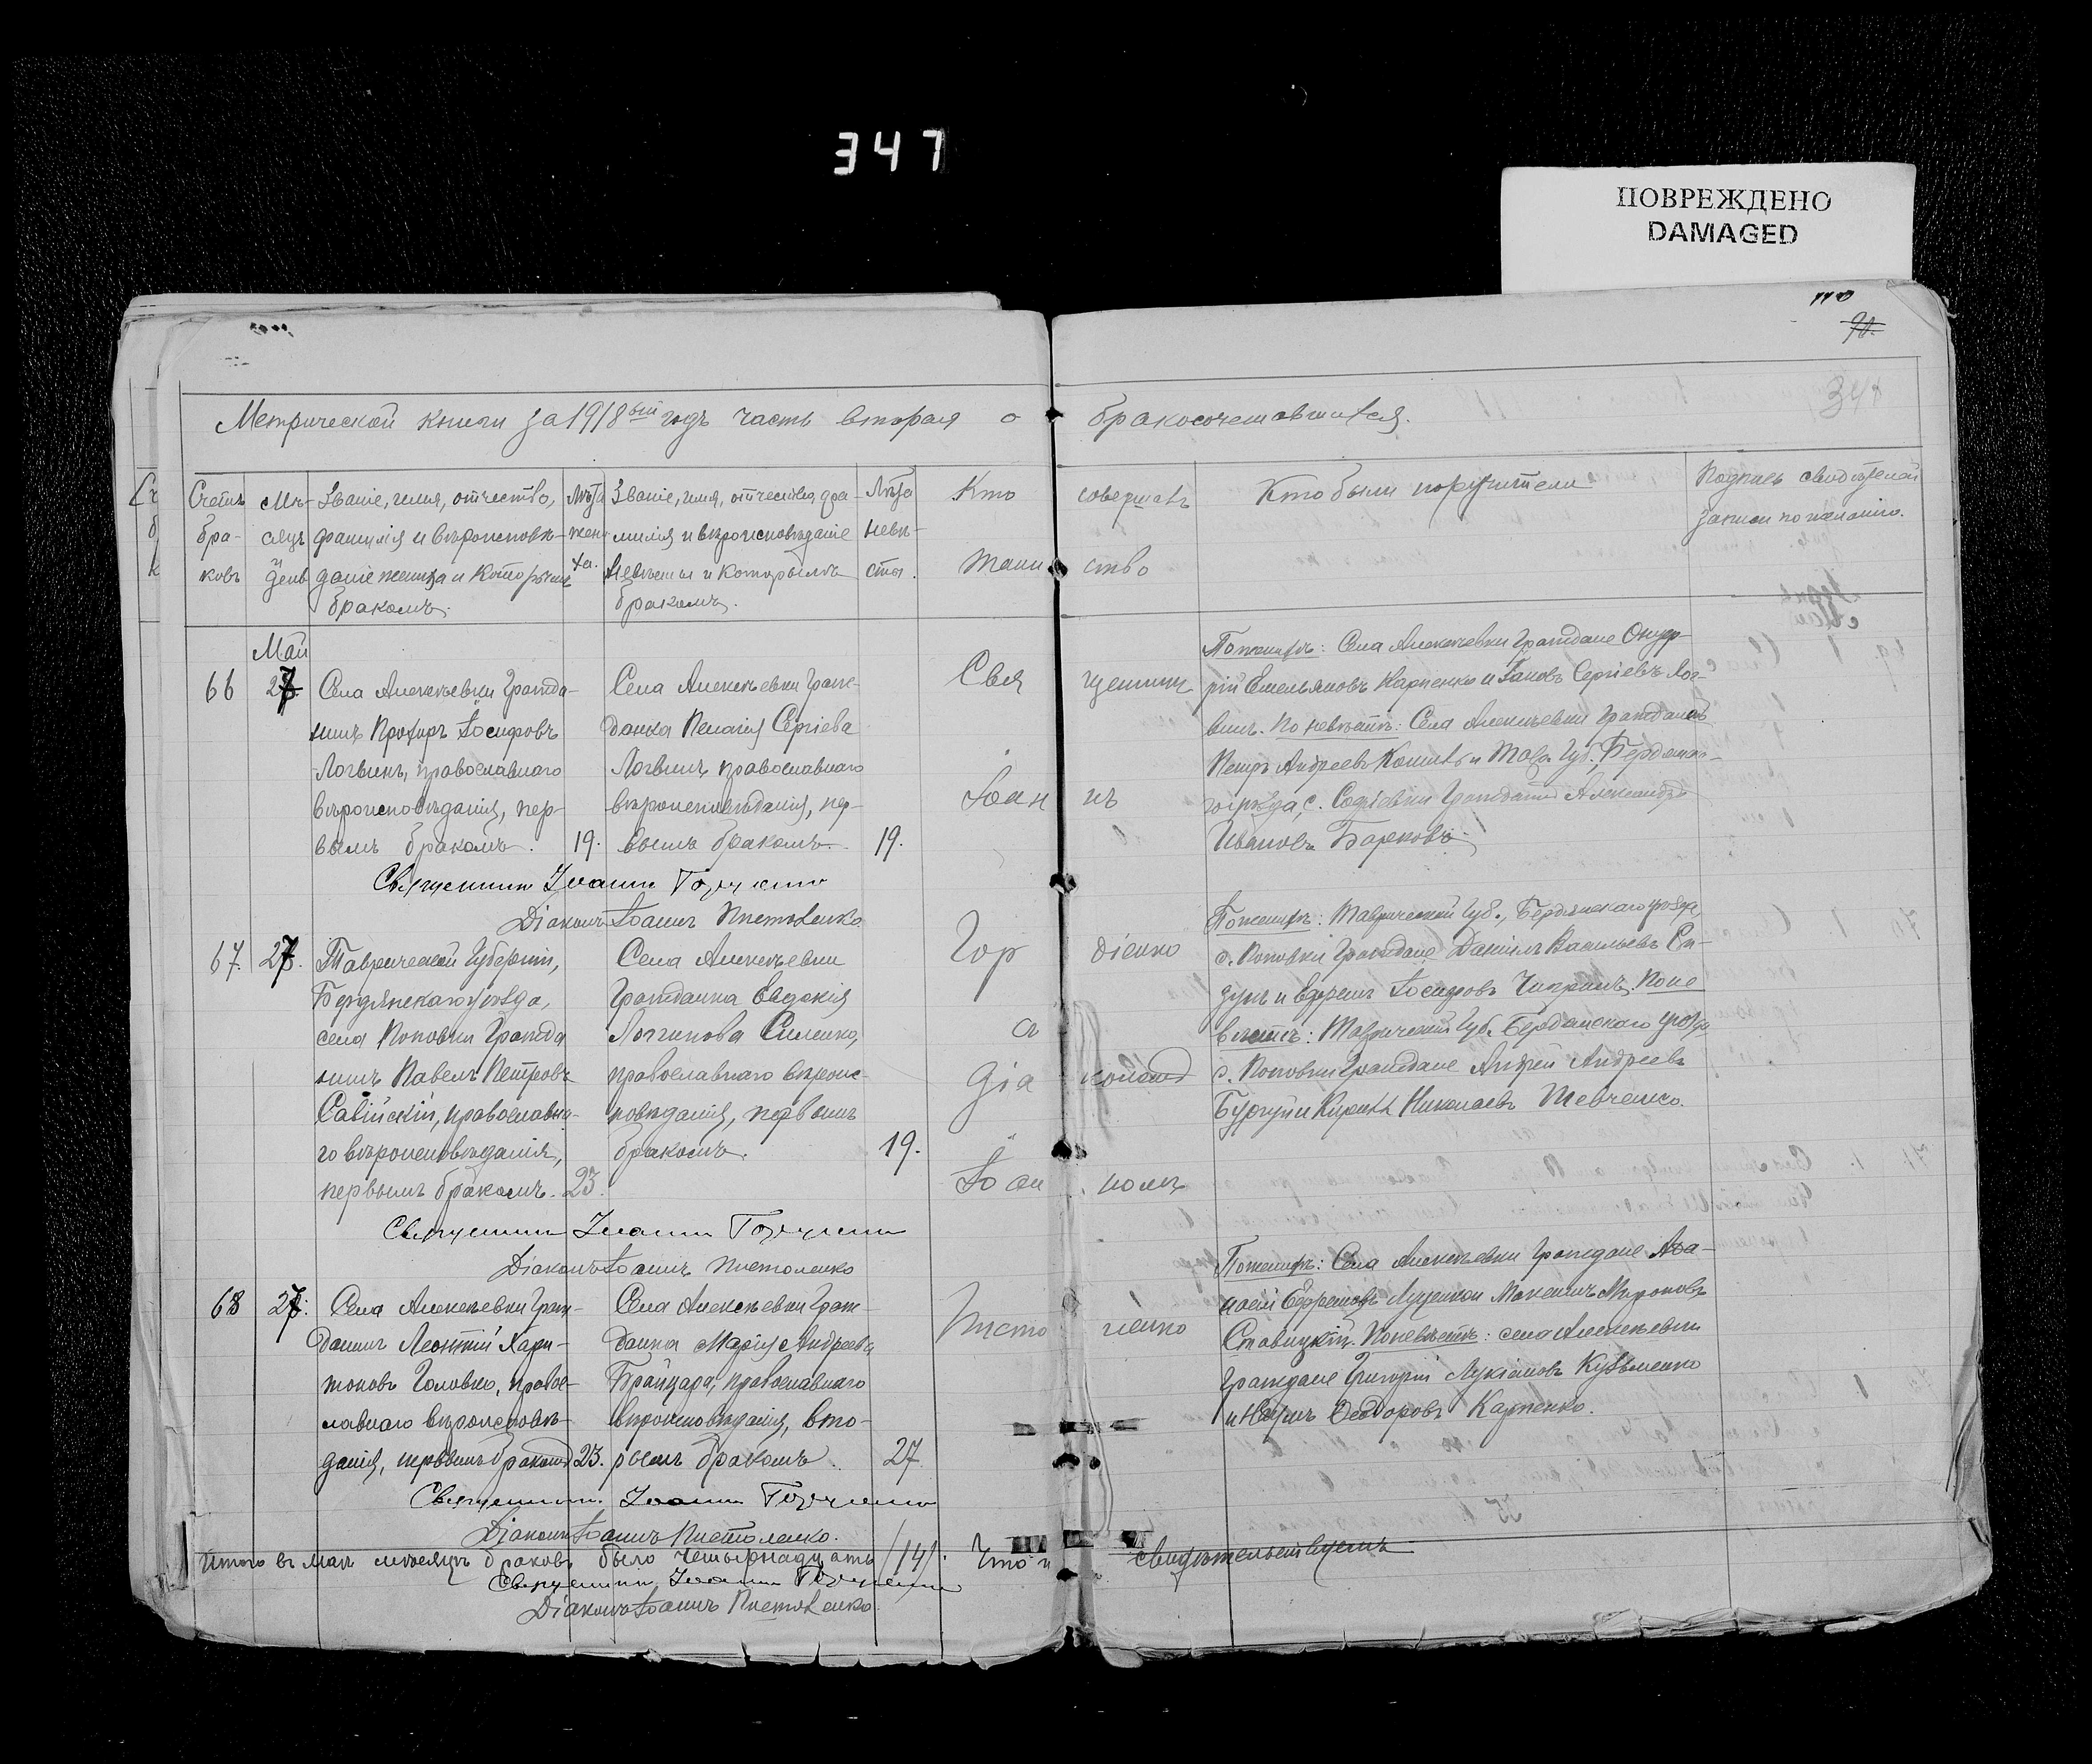 347
ПОВРЕЖДЕНО
DAMAGED
110
Метрической книги за 1918ый годъ часть вторая о бракосочетавшихся.
Счетъ браковъ
Мѣсяцъ и день
Званіе, имя, отчество,
фамилія и вѣроисповѣ-
даніе жениха и которымъ
бракомъ.
Лѣта жениха.
Званіе, имя, отчество, фа-
милія и вѣроисповѣданіе
невѣсты и которымъ
бракомъ.
Лѣта невѣ-
сты.
Кто совершалъ
таинство
Кто были поручители
Подпись свидѣтелей
записи по желанію.
Май
66
27
Села Алексѣевки гражда-
нинъ Прохоръ Іосифовъ
Логвинъ, православнаго
вѣроисповѣданія, пер-
вымъ бракомъ. 19.
Села Алексѣевки граж-
данка Пелагія Сергіева
Логвинъ, православнаго
вѣроисповѣданія, пер-
вымъ бракомъ. 19.
Священникъ
Іоаннъ
Гордіенко
съ
діакономъ
Іоанномъ
Пистоленко
По женихѣ: Села Алексѣевки граждане Онуф-
рій Емельяновъ Карпенко и Іаковъ Сергіевъ Лог-
винъ. По невѣстѣ: Села Алексѣевки гражданинъ
Петръ Андреевъ и Тавр. Губ., Бердянска-
го уѣзда, с. Софіевки гражданинъ Александръ
Ивановъ Барковъ.
Священникъ Іоаннъ Гордіенко
Діаконъ Іоаннъ Пистоленко
67.
27.
Таврической Губерніи,
Бердянскаго уѣзда,
села Поповки гражда
нинъ Павелъ Петровъ
Савійскій, православна-
го вѣроисповѣданія,
первымъ бракомъ. 23.
Села Алексѣевки
гражданка Евдокія
Логгинова Силенко,
православнаго вѣроис-
повѣданія, первымъ
бракомъ. 19.
По женихѣ: Таврической Губ., Бердянскаго уѣзда,
с. Поповки граждане Даніилъ Васильевъ Ел-
и Іосифовъ Чипринъ. По не
вѣстѣ: Таврической Губ. Бердянскаго уѣзда
с. Поповки граждане Андрей Андреевъ
и Кириллъ Николаевъ Шевченко.
Священникъ Іоаннъ Гордіенко
Діаконъ Іоаннъ Пистоленко
68
27.
Села Алексѣевки граж-
данинъ Леонтій Хари-
тоновъ Головко, правос-
лавнаго вѣроисповѣ-
данія, первымъ бракомъ 23.
Села Алексѣевки граж-
данка Марія Андреева
православнаго
вѣроисповѣданія, вто-
рымъ бракомъ. 27
По женихѣ: Села Алексѣевки граждане Аѳа-
насій Ефремовъ Луценко и Максимъ Мироновъ
Ставицкій. По невѣстѣ: села Алексѣевки
граждане Григорій Лукіановъ Кузьменко
и Ѳеодоровъ Карпенко.
Священникъ Іоаннъ Гордіенко
Діаконъ Іоаннъ Пистоленко.
Итого въ маѣ мѣсяцѣ браковъ было четырнадцать /14/. Что и свидѣтельствуемъ
Священникъ Іоаннъ Гордіенко
Діаконъ Іоаннъ Пистоленко.